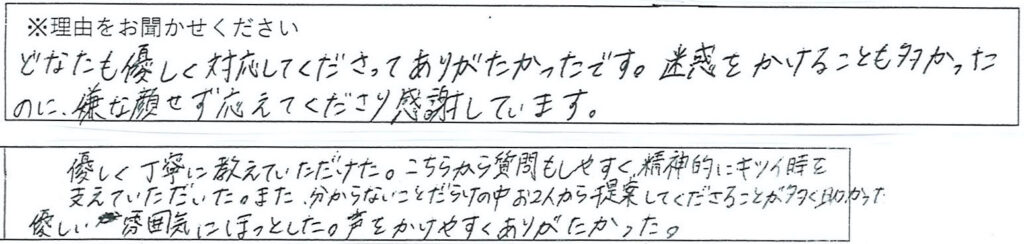 ※理由をお聞かせください
どなたも優しく対応してくださってありがたかったです。迷惑をかけることも多かった
のに、嫌な顔せず応えてくださり感謝しています。
優しく丁寧に教えていただけた。こちらから質問もしやすく、精神的にキツイ時を
支えていただいた。また、分からないことだらけの中お2人から提案してくださることが多く助かった
優しい雰囲気にほっとした。声をかけやすくありがたかった。